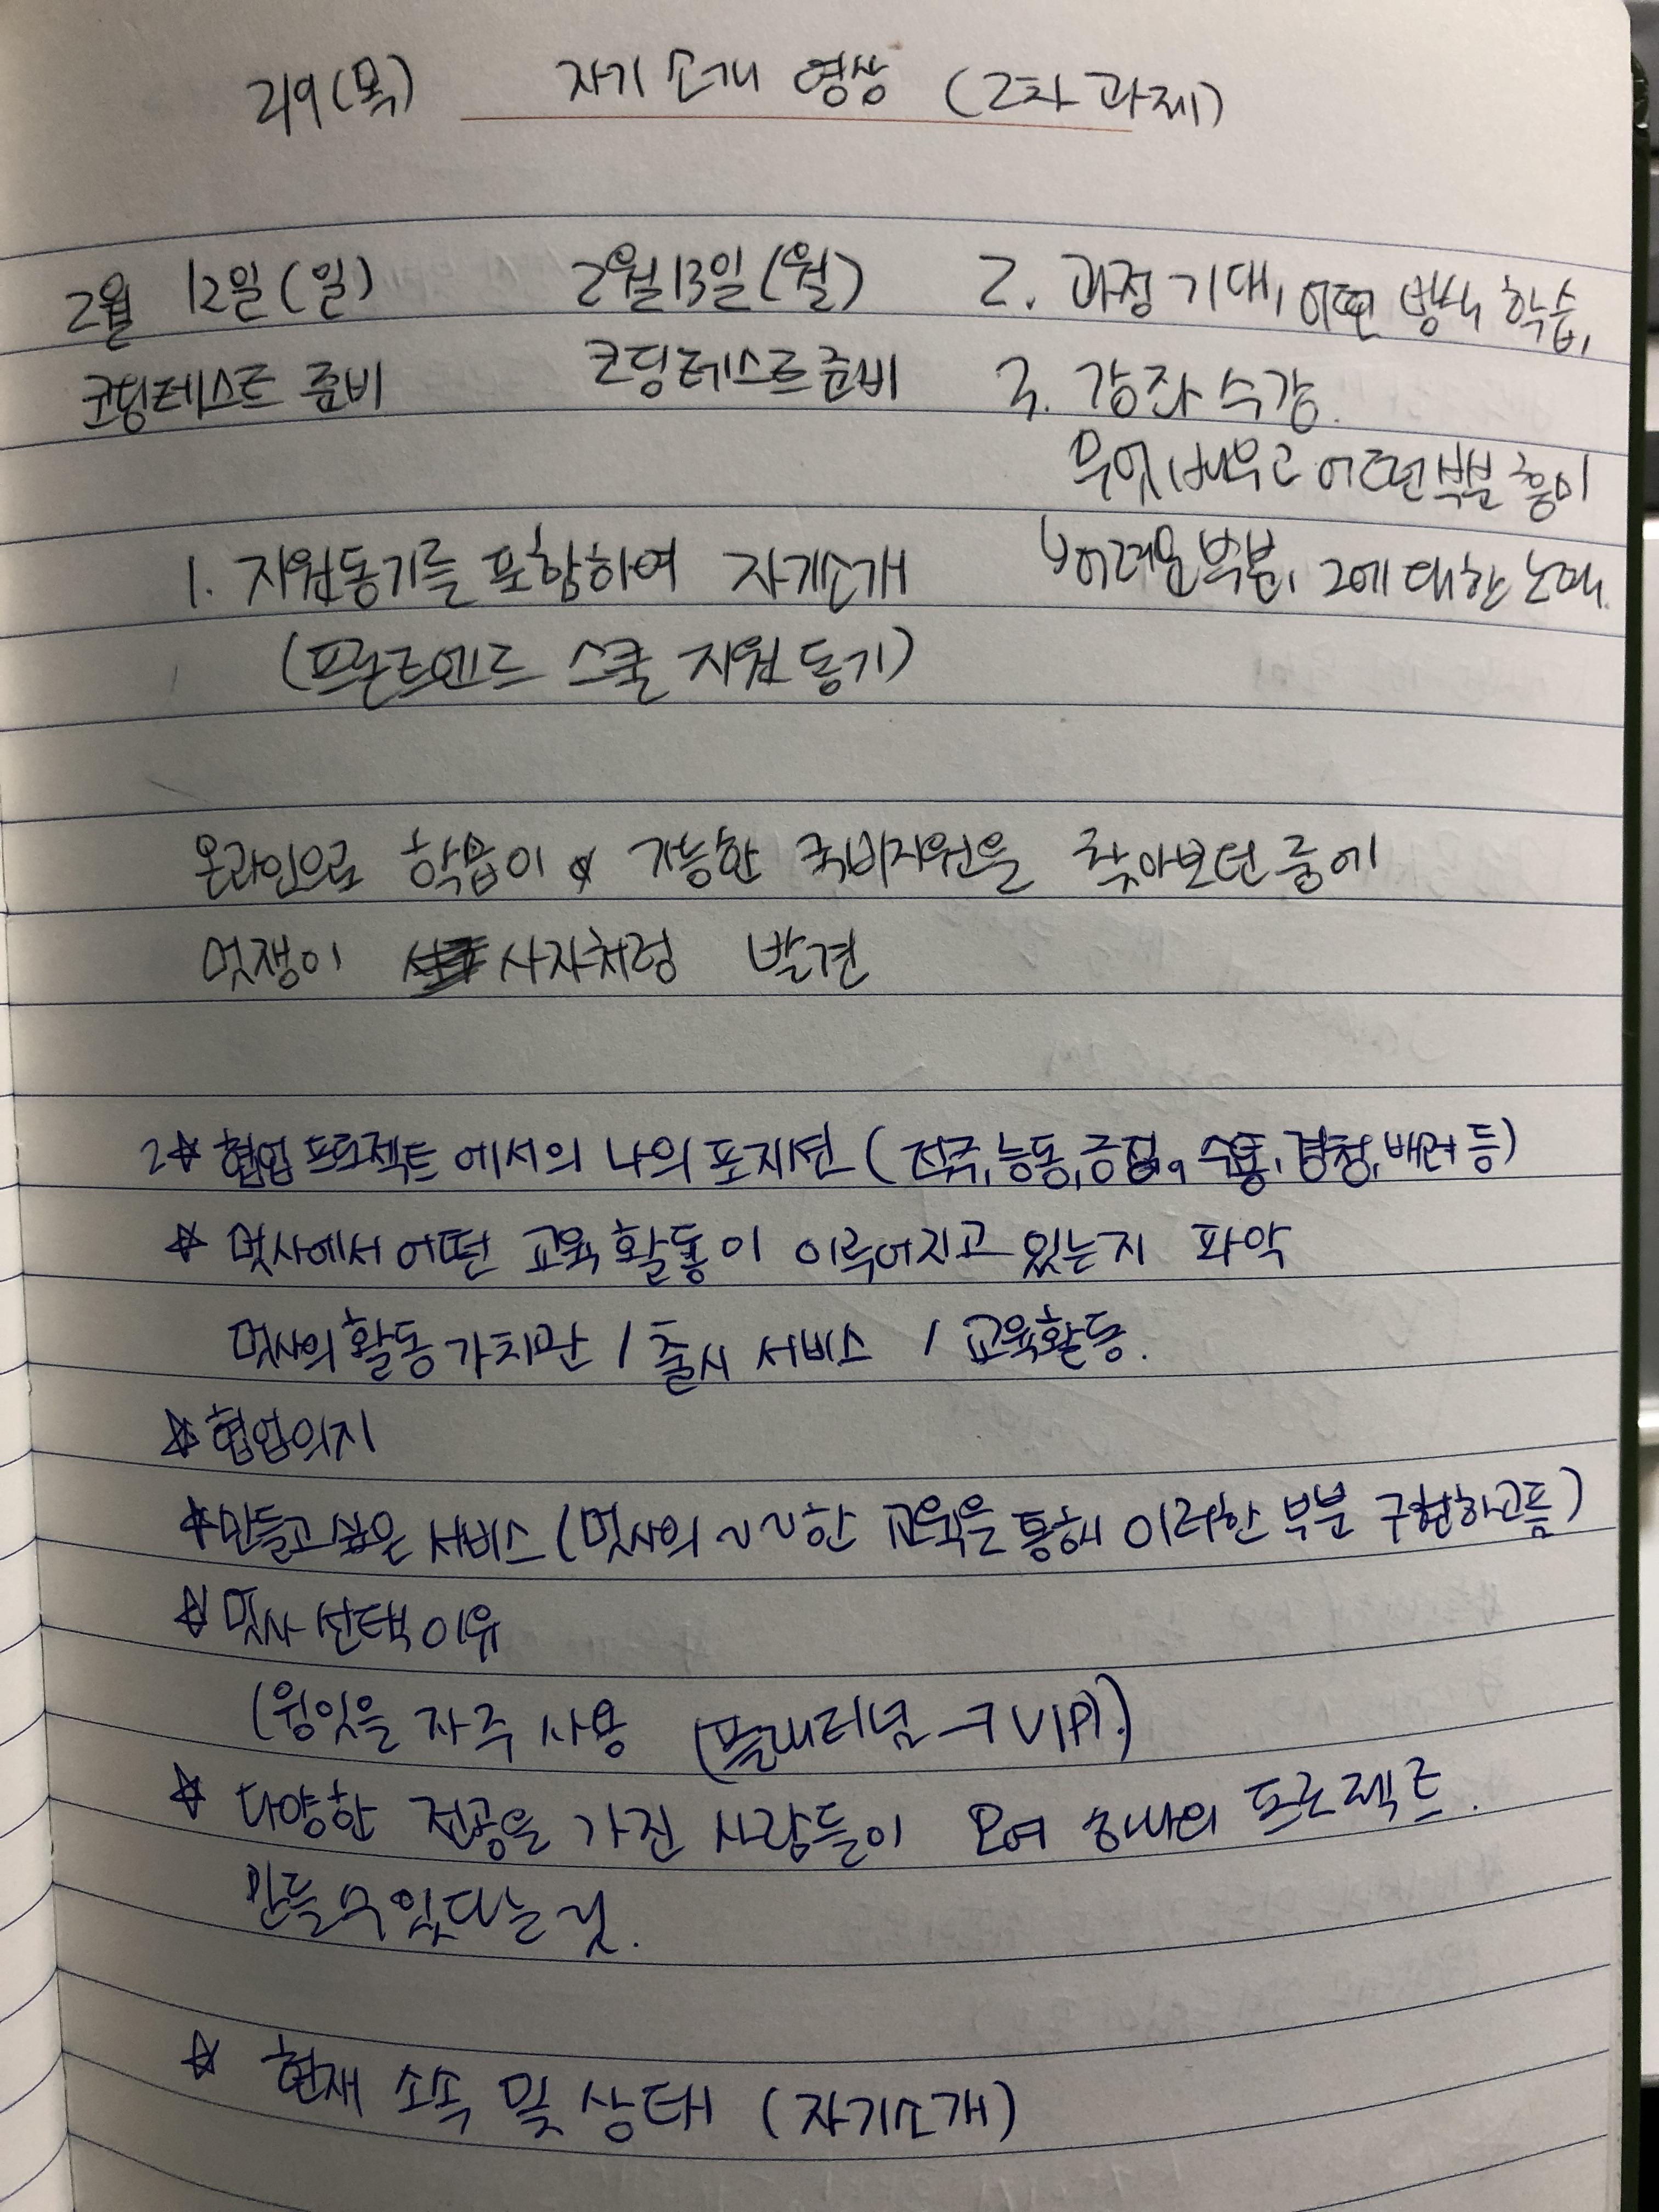 2/9(목) 자기소개 영상 (2차 과제)
2월 12일(일) 2월13일(월)
코딩테스트 준비 코딩테스트준비
2. 과정 기대, 어떤 방식 학습,
3. 강좌 수강.
무엇 배우고 어떤부분 흥미
↳어려운부분, 그에 대한 노력.
1. 지원동기를 포함하여 자기소개
(프론트엔드 스쿨 지원 동기)
온라인으로 학습이 가능한 국비지원을 찾아보던 중에
멋쟁이 사자처럼 발견
2☆ 협업 프로젝트에서의 나의 포지션 (적극,능동,긍정, 수용,경청,배려 등)
☆ 멋사에서 어떤 교육 활동이 이루어지고 있는지 파악
멋사의 활동 가치관 / 출시 서비스 / 교육활동.
☆ 협업의지
☆ 만들고 싶은 서비스 (멋사의 ~~한 교육을 통해 이러한 부분 구현하고픔)
☆ 멋사 선택 이유
(윙잇을 자주 사용 (플래티넘 → VIP).)
☆ 다양한 전공을 가진 사람들이 모여 하나의 프로젝트.
만들 수 있다는 것.
☆ 현재 소속 및 상태 (자기소개)